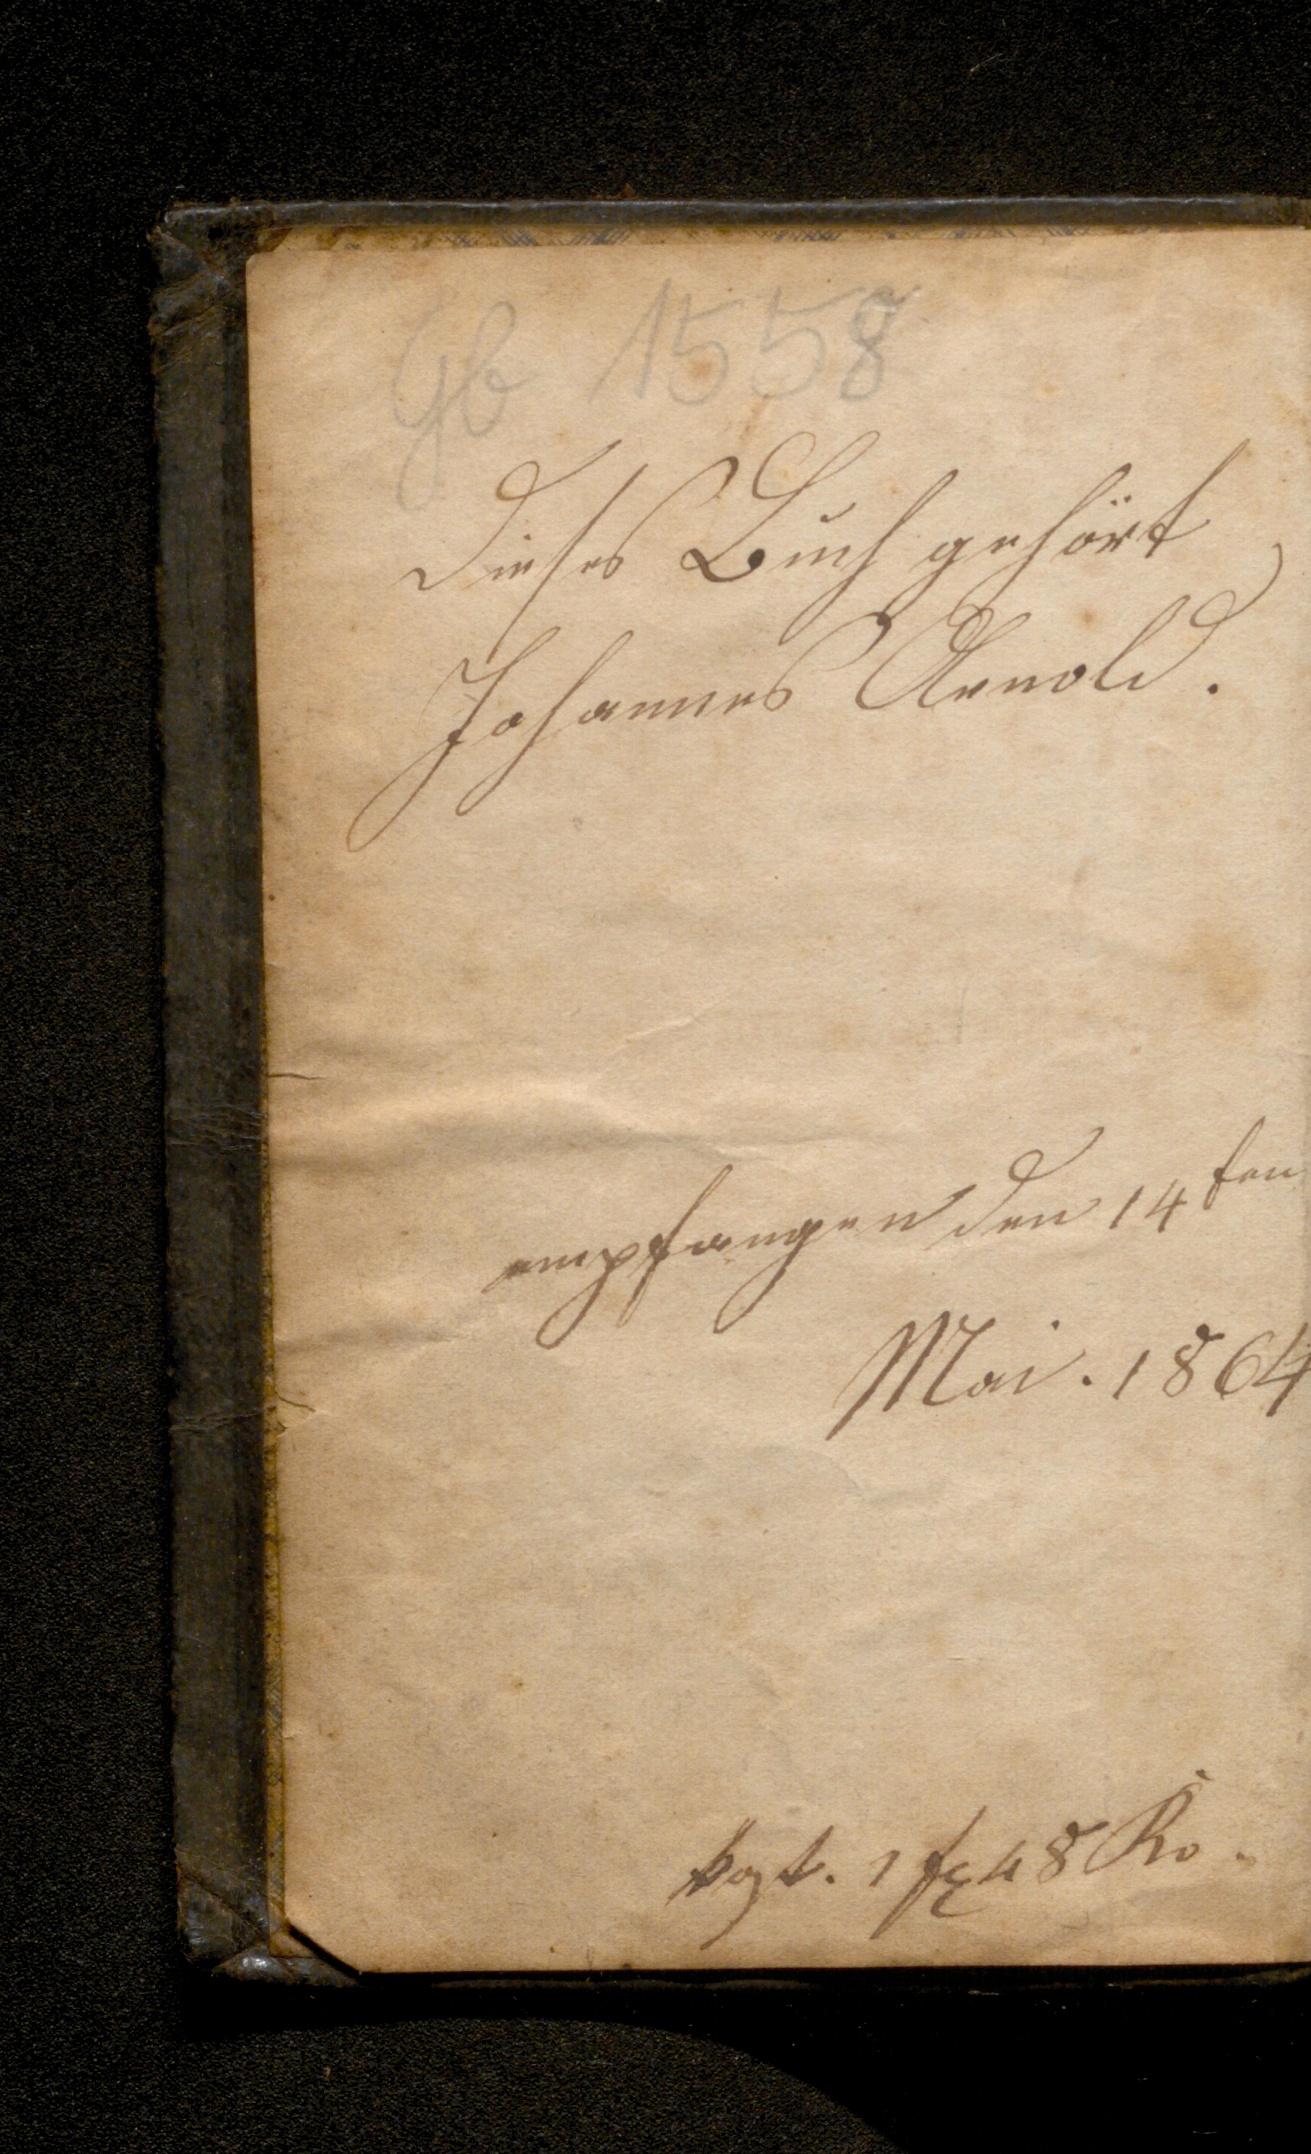 Gb 1558
Dieses Buch gehört
Johannes Arnold.
empfangen den 14ten
Mai. 1864
kost. 1 f 48 Kr.